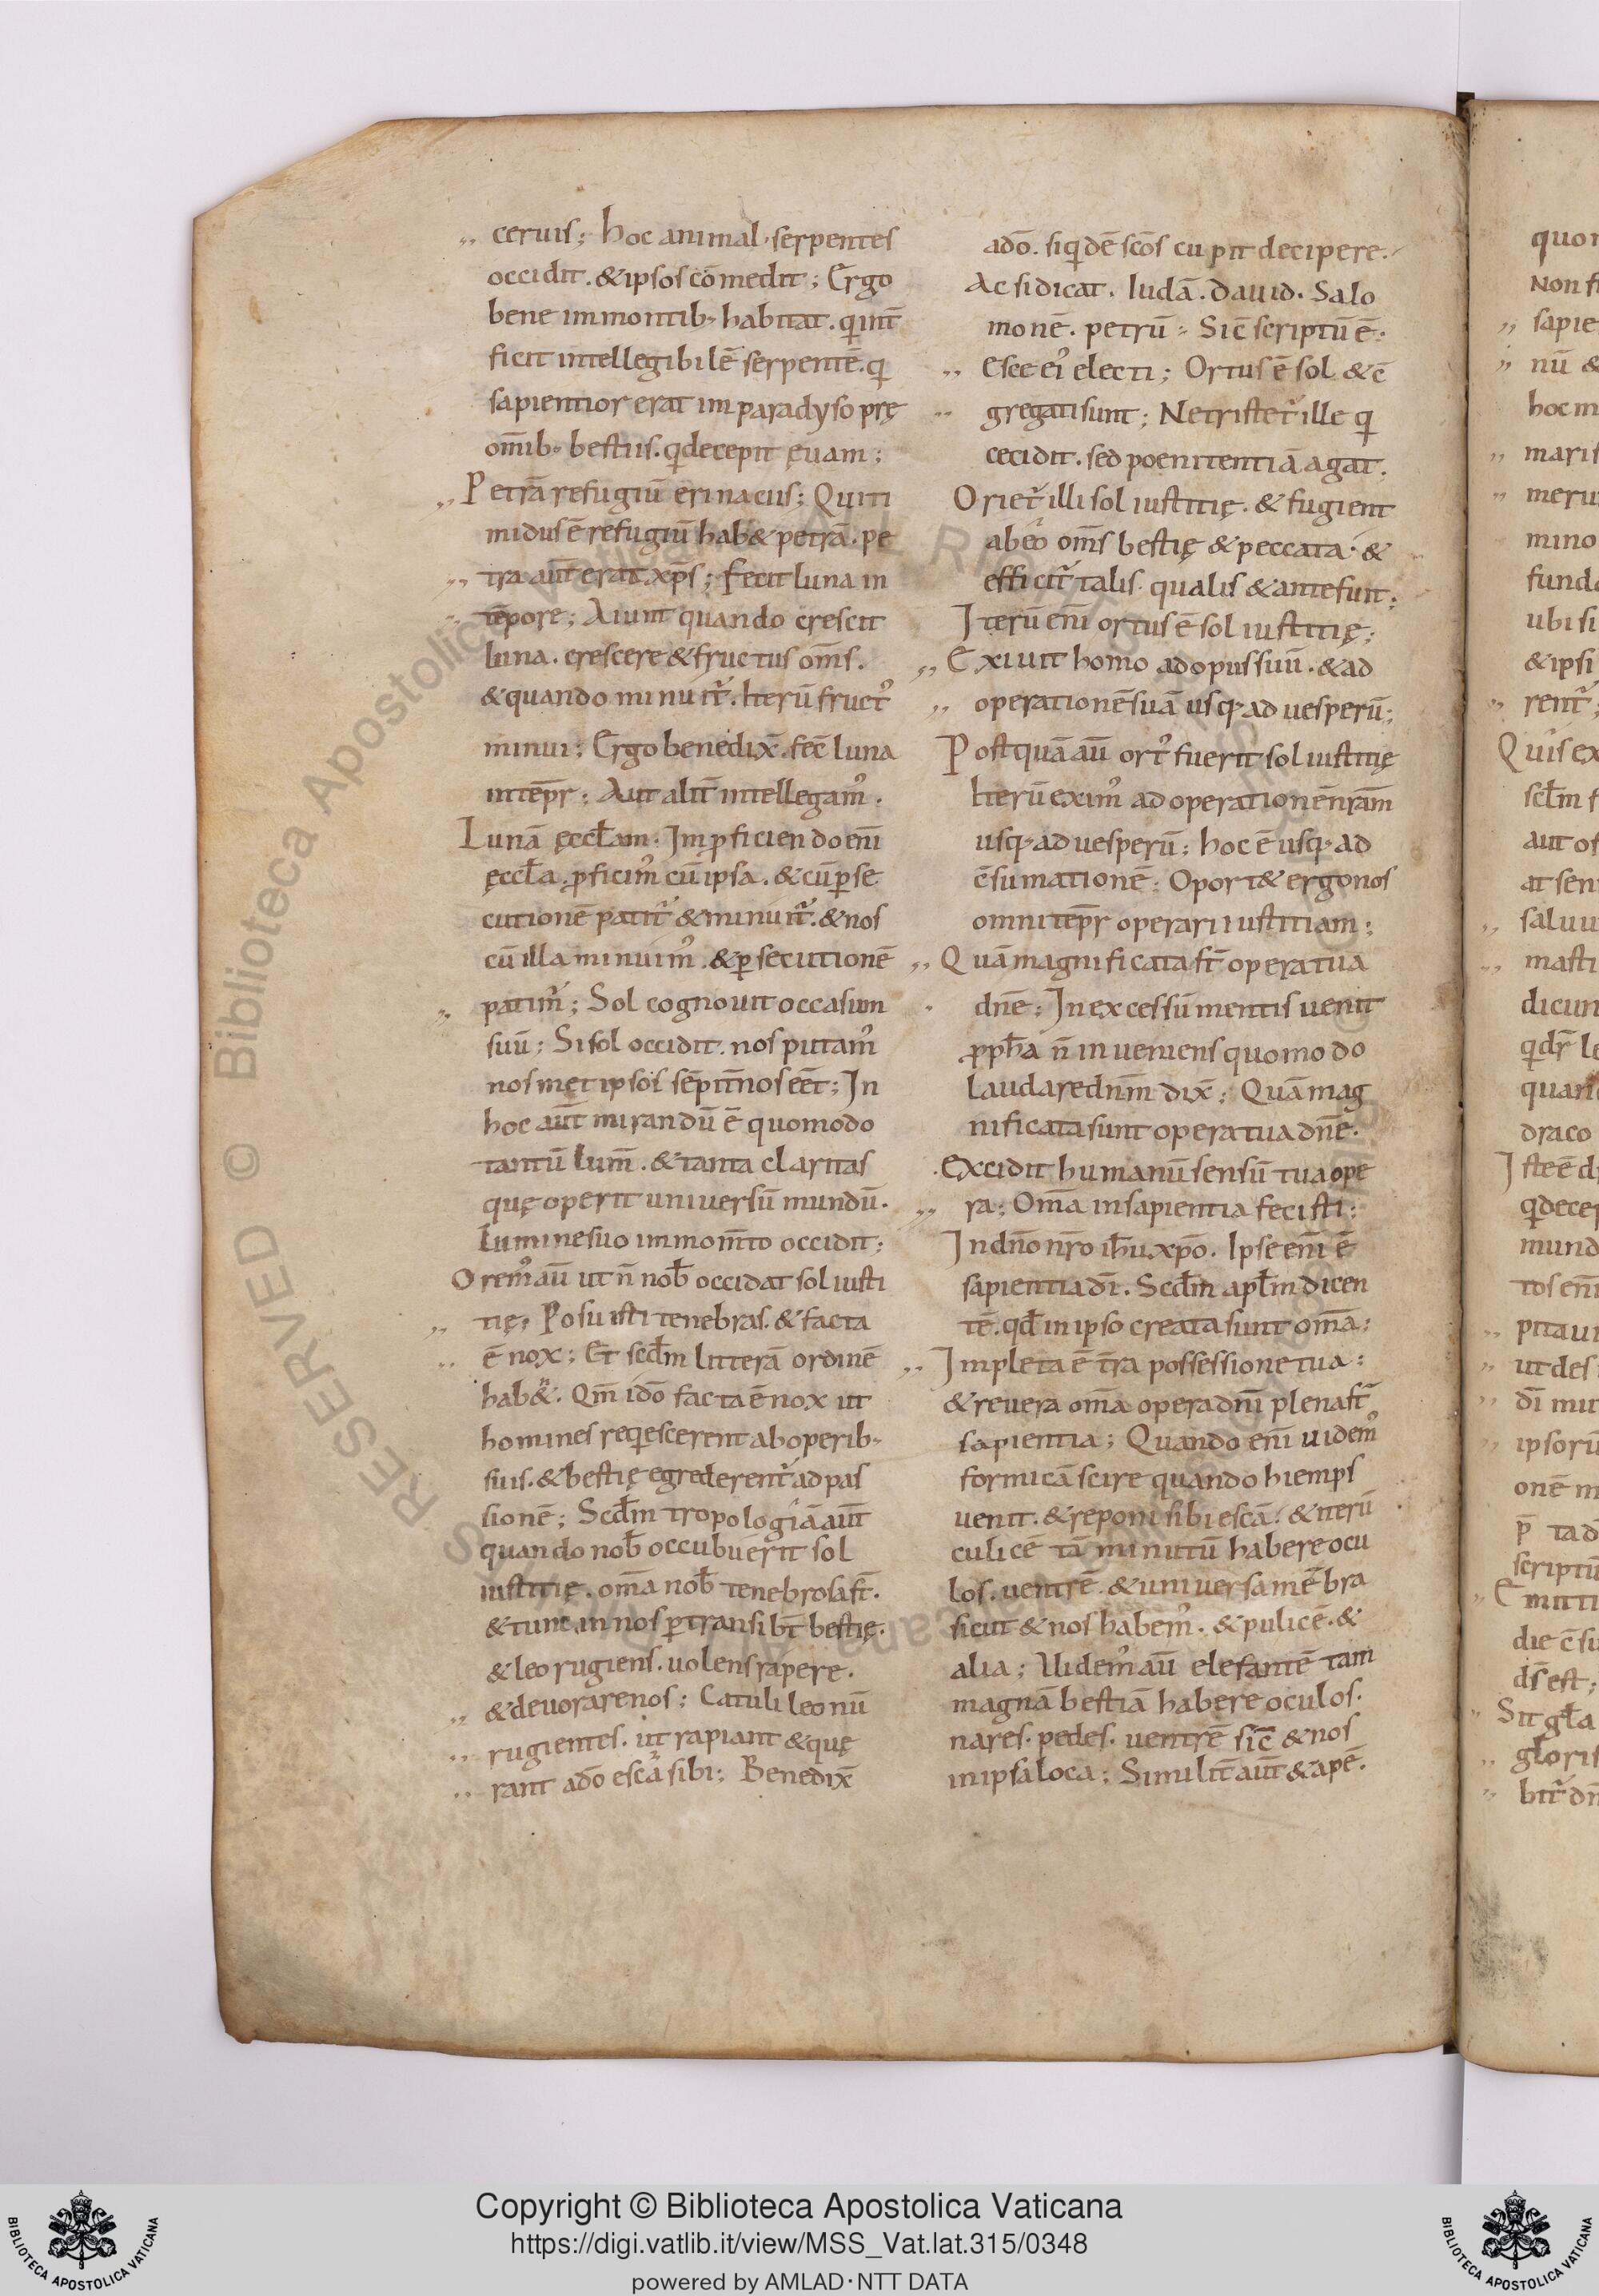 ceruis; hoc animal serpentes
occidit. & ipsos cōmedit; Ergo
bene immontib; habitat. q̄ int̄
ficit intellegibilē serpentē. q
sapientior erat im paradyso prę
om̄ib; bestiis. q decepit ęuam;
Petrā refugiū erinaciis; Qui ti
midus ē refugiū hab& petrā. pe
tra aut̄ erat xp̄s; Fecit luna in
tēpore; Aiunt quando crescit
luna. crescere & fructus om̄s.
& quando minuit̄. Iterū fruct'
minui; Ergo benedix̄. fec̄ luna
intēpr; Aut alit̄ intellegam'.
Lunā ęccl̄am. Im ꝓficiendo eni̅
ęccl̄a. ꝓficim' cū ipsa. & cū ꝑse
cutionē patit̄ & minuit̄. & nos
cū illa minuim'. & ꝑsecutionē
patim̄; Sol cognouit occasum
suū; Si sol occidit. nos putam'
nos met ipsos sēpit̄nos eēt; In
hoc aut̄ mirandū ē quomodo
tantū lum̄. & tanta claritas
quę operit uniuersū mundū.
Lumine suo immom̄to occidit;
Orem' aū ut n̄ nob̄ occidat sol iusti
tię; Posuisti tenebras. & facta
ē nox; Et scd̄m litterā ordinē
hab&. Qm̄ idō facta ē nox ut
homines reqescerent ab operib;
suis. & bestię egrederent̄ ad pas
sionē; Scd̄m tropologiā aut̄
quando nob̄ occubuerit sol
iustitię. om̄a nob̄ tenebrosa st̄.
& tunc in nos ꝑtransib̄t bestię.
& leo rugiens. uolens rapere.
& deuorare nos; Catuli leonū
rugientes. ut rapiant & quę
rant ad̄o escā sibi; Benedix̄
ad̄o. siqdē sc̄os cupit decipere.
Ac si dicat. Iudā. dauid. Salo
monē. petrū; Sic̄ scriptū ē.
Escę ei' electi; Ortus ē sol & c̄
gregati sunt; Ne tristet̄ ille q
cecidit. sed poenitentiā agat.
Oriet̄ illi sol iustitię. & fugient
ab eo om̄s bestię & peccata. &
efficit̄ talis qualis & ante fuit;
Iterū eni̅ ortus ē sol iustitię;
Exiuit homo ad opus suū. & ad
operationē suā usq; ad uesperū;
Postquā aū ort' fuerit sol iustitię
Iterū exim' ad operationē nr̄am
usq; ad uesperū; hoc ē usq; ad
c̄sumationē; Oport& ergo nos
omni tēpr operari iustitiam;
Quā magnificata st̄ opera tua
dn̄e; In excessū mentis uenit
ꝓph̄a n̄ inueniens quomodo
laudare dn̄m dix̄; Quā mag
nificata sunt opera tua dn̄e.
Excidit humanū sensū tua ope
ra; Om̄a insapientia fecisti;
In dn̄o nr̄o ih̄u xp̄o. Ipse eni̅ ē
sapientia di̅. Scd̄m apl̄m dicen
tē. qd̄ in ipso creata sunt om̄a;
Impleta ē t̄ra possessione tua;
& reuera om̄a opera dni̅ plena st̄
sapientia; Quando eni̅ uidem'
formicā scire quando hiemps
uenit. & reponi sibi escā. & iterū
culicē tā minutū habere ocu
los. uentrē. & uniuersa mēbra
sicut & nos habem'. & pulicē. &
alia; Uidem' aū elefantē tam
magnā bestiā habere oculos.
nares. pedes. uentrē sic̄ & nos
in ipsa loca; Similit̄ aut̄ & apē.
quon
Non f
sapie
nū &
hoc m
maris
meru
mino
fund
ubi si
& ipsi
rent̄;
Quis ex
scl̄m f
aut os
at sen
saluu
masti
dicun
qdr̄ le
quan
draco
Iste ē d
qdecep
mund
tos eni̅
pitaui
ut des
di̅ mit
ipsorū
onē m
p̄ tad
scriptū
Emitti
die c̄su
ds̄ est;
Sit gl̄a
gloris
bit̄ dn̄
Copyright © Biblioteca Apostolica Vaticana
https://digi.vatlib.it/view/MSS_Vat.lat.315/0348
powered by AMLAD · NTT DATA
BIBLIOTECA APOSTOLICA VATICANA
BIBLIOTECA APOSTOLICA VATICANA